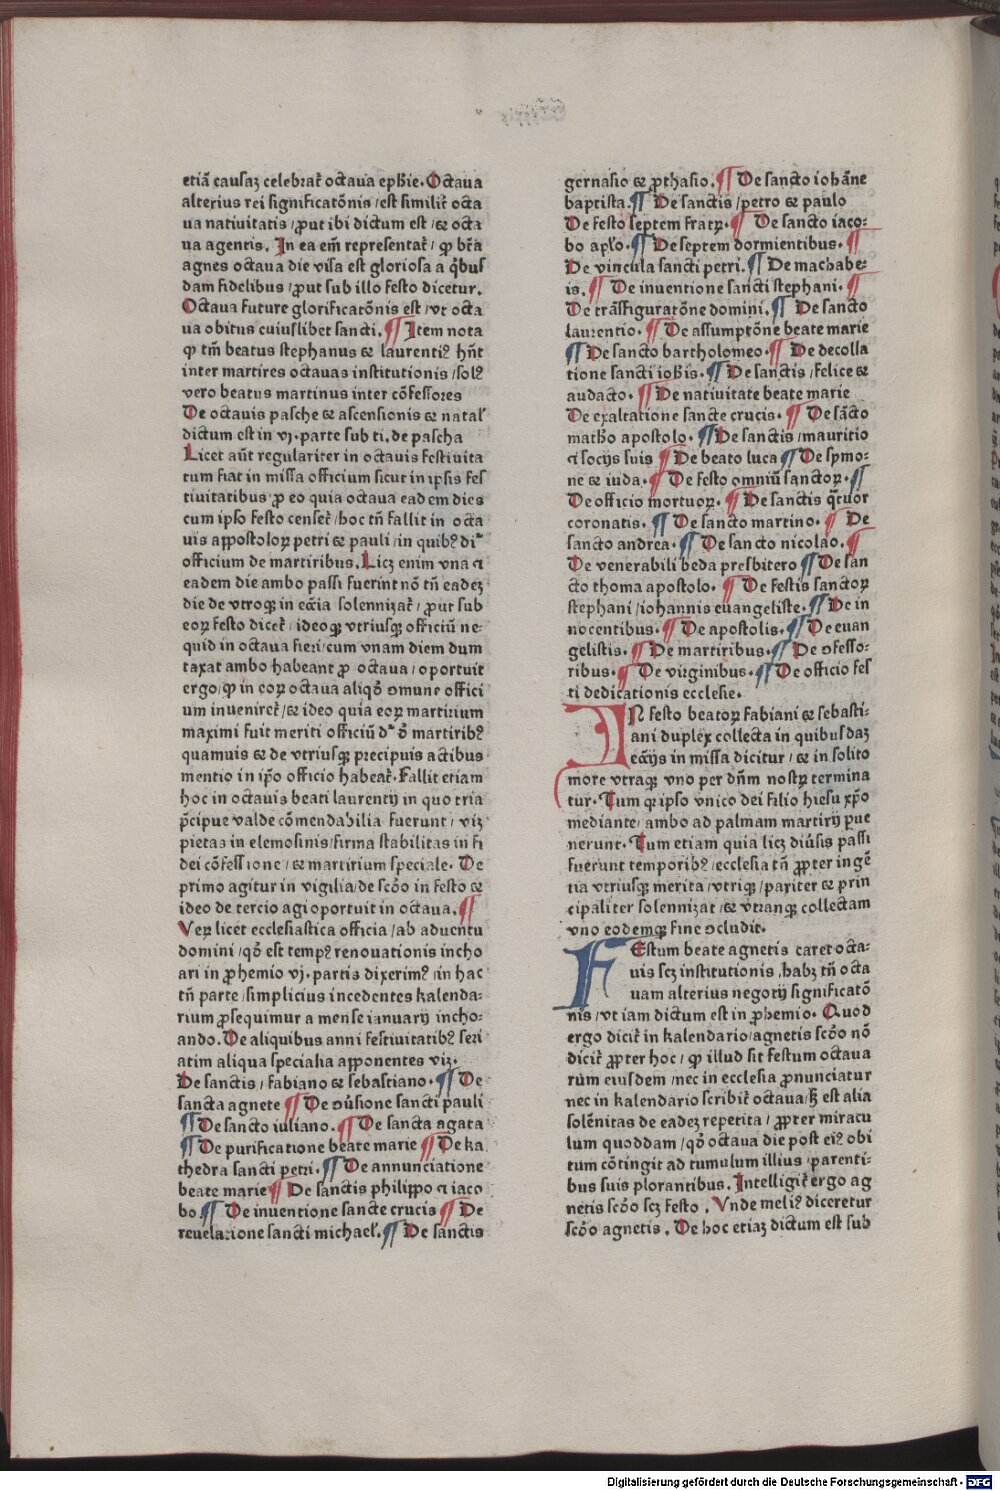 etiã causaꝫ celebrat̃ octaua epħie. Octaua
alterius rei significatõnis / est similit̃ octa
ua natiuitatis / ꝓut ibi dictum est / ⁊ octa
ua agentis. In ea em̃ representat̃ / ꝙ bt̃a
agnes octaua die visa est gloriosa a q̃bus
dam fidelibus / ꝓut sub illo festo dicetur.
Octaua future glorificatõnis est / vt octa
ua obitus cuiuslibet sancti. ¶ Item nota
ꝙ tm̃ beatus stephanus ⁊ laurentiꝰ hñt
inter martires octauas institutionis / solꝰ
vero beatus martinus inter cõfessores
De octauis pasche ⁊ ascensionis ⁊ natal̃
dictum est in vj. parte sub ti. de pascha
Licet aut̃ regulariter in octauis festiuita
tum fiat in missa officium sicut in ipsis fes
tiuitatibus ꝓ eo quia octaua eadem dies
cum ipso festo censet̃ / hoc tñ fallit in octa
uis appostoloꝝ petri ⁊ pauli / in quibꝰ di
officium de martiribus. Licꝫ enim vna ⁊
eadem die ambo passi fuerint nõ tñ eadeꝫ
die de vtroqꝫ in ecc̃ia solennizat̃ / ꝓut sub
eoꝝ festo dicet̃ / ideoqꝫ vtriusqꝫ officiũ ne-
quid in octaua fieri / cum vnam diem dum
taxat ambo habeant ꝓ octaua / oportuit
ergo / ꝙ in eoꝝ octaua aliqõ ꝯmune offici
um inueniret̃ / ⁊ ideo quia eoꝝ martirium
maximi fuit meriti officiũ dꝛ õ martiribꝰ
quamuis ⁊ de vtriusqꝫ precipuis actibus
mentio in ip̃o officio habeat̃. Fallit etiam
hoc in octauis beati laurentij in quo tria
p̃cipue valde cõmendabilia fuerunt / viꝫ
pietas in elemosinis / firma stabilitas in fi
dei cõfessione / ⁊ martirium speciale. De
primo agitur in vigilia / de scõo in festo ⁊
ideo de tercio agi oportuit in octaua. ¶
Veꝝ licet ecclesiastica officia / ab aduentu
domini / qõ est tempꝰ renouationis incho
ari in ꝓhemio vj. partis dixerimꝰ / in hac
tñ parte / simplicius incedentes kalenda-
rium ꝓsequimur a mense ianuarij incho-
ando. De aliquibus anni festiuitatibꝰ seri
atim aliqua specialia apponentes viꝫ.
De sanctis / fabiano ⁊ sebastiano. ¶ De
sancta agnete ¶ De ꝯũsione sancti pauli
¶ De sancto iuliano. ¶ De sancta agata
¶ De purificatione beate marie ¶ De ka
thedra sancti petri. ¶ De annunciatione
beate marie ¶ De sanctis philippo ⁊ iaco
bo ¶ De inuentione sancte crucis ¶ De
reuelatione sancti michael̃. ¶ De sanctis
geruasio ⁊ ꝓthasio. ¶ De sancto iohãne
baptista. ¶ De sanctis / petro ⁊ paulo
De festo septem fratꝝ. ¶ De sancto iaco-
bo ap̃lo. ¶ De septem dormientibus. ¶
De vincula sancti petri. ¶ De machabe-
is. ¶ De inuentione sancti stephani. ¶
De trãsfiguratõne domini. ¶ De sancto
laurentio. ¶ De assumptõne beate marie
¶ De sancto bartholomeo. ¶ De decolla
tione sancti ioħis. ¶ De sanctis / felice ⁊
audacto. ¶ De natiuitate beate marie
De exaltatione sancte crucis. ¶ De sãcto
matħo apostolo. ¶ De sanctis / mauritio
⁊ socijs suis ¶ De beato luca ¶ De symo-
ne ⁊ iuda. ¶ De festo omniũ sanctoꝝ. ¶
De officio mortuoꝝ. ¶ De sanctis q̃tuor
coronatis. ¶ De sancto martino. ¶ De
sancto andrea. ¶ De sancto nicolao. ¶
De venerabili beda presbitero ¶ De san
cto thoma apostolo. ¶ De festis sanctoꝝ
stephani / iohannis euangeliste. ¶ De in
nocentibus. ¶ De apostolis. ¶ De euan
gelistis. ¶ De martiribus. ¶ De ꝯfesso-
ribus. ¶ De virginibus. ¶ De officio fes
ti dedicationis ecclesie.
IN festo beatoꝝ fabiani ⁊ sebasti-
ani duplex collecta in quibusdaꝫ
ecc̃ijs in missa dicitur / ⁊ in solito
more vtraqꝫ vno per dñm nostꝝ termina
tur. Tum qꝛ ipso vnico dei filio hiesu xp̃o
mediante / ambo ad palmam martirij pue
nerunt. Tum etiam quia licꝫ diũsis passi
fuerunt temporibꝰ / ecclesia tñ ꝓpter ingẽ
tia vtriusqꝫ merita / vtriqꝫ / pariter ⁊ prin
cipaliter solennizat / ⁊ vtranqꝫ collectam
vno eodemqꝫ fine ꝯcludit.
FEstum beate agnetis caret octa-
uis scꝫ institutionis, habꝫ tñ octa
uam alterius negotij significatõ
nis / vt iam dictum est in ꝓhemio. Quod
ergo dicit̃ in kalendario / agnetis scõo nõ
dicit̃ ꝓpter hoc / ꝙ illud sit festum octaua
rum eiusdem / nec in ecclesia ꝓnunciatur
nec in kalendario scribit̃ octaua / sꝫ est alia
solẽnitas de eadeꝫ repetita / ꝓpter miracu
lum quoddam / qõ octaua die post eiꝰ obi
tum cõtingit ad tumulum illius / parenti-
bus suis plorantibus. Intelligit̃ ergo ag
netis scõo scꝫ festo. Vnde meliꝰ diceretur
scõo agnetis. De hoc etiaꝫ dictum est sub
Digitalisierung gefördert durch die Deutsche Forschungsgemeinschaft - DFG